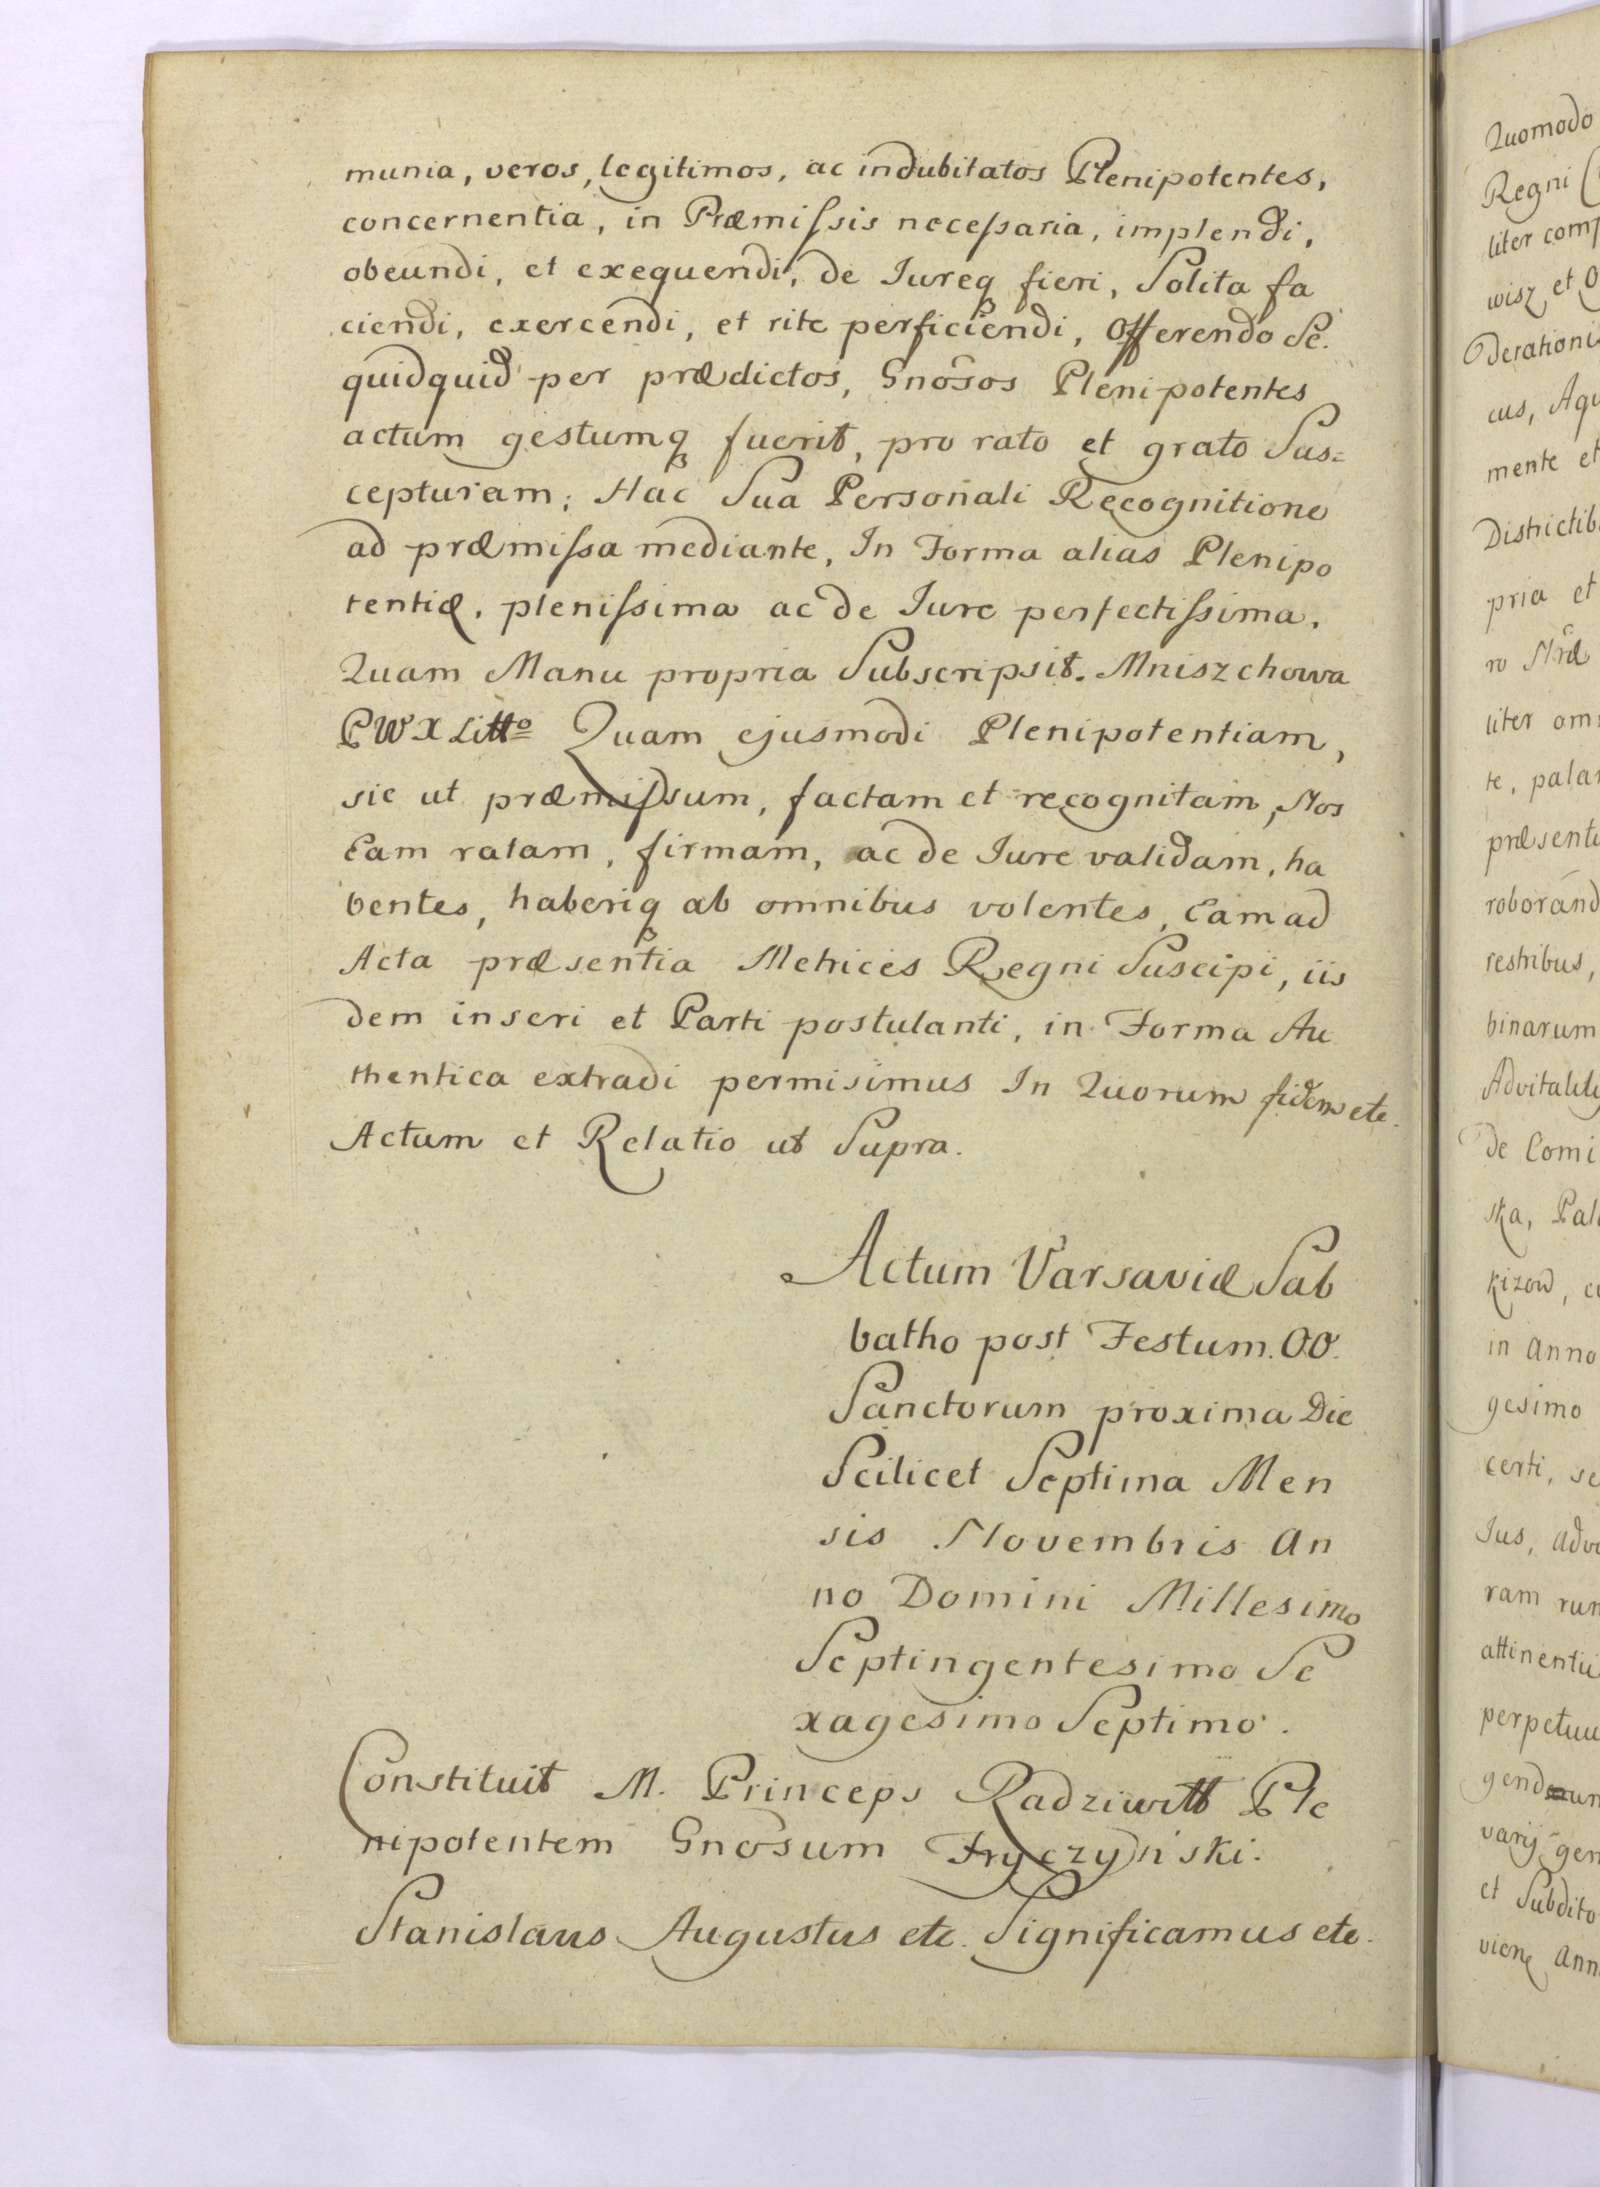 munia, veros, legitimos, ac indubitatos Plenipotentes,
concernentia, in Præmiſsis neceſsaria, implendi,
obeundi, et exequendi, de Iureq fieri, Solita fa
ciendi, exercendi, et rite perficiendi, Offerendo Se
quidquid per prædictos, Gnosos Plenipotentes
actum gestumq fuerit, pro rato et grato Sus=
cepturam; Hac Sua Personali Recognitione
ad præmiſsa mediante, In Forma alias Plenipo
tentiæ, pleniſsima ac de Iure perfectiſsima.
Quam Manu propria Subscripsit. Mniszchowa
PWX Litto Quam ejusmodi Plenipotentiam,
sic ut præmiſsum, factam et recognitam, Nos
Eam ratam, firmam, ac de Iure validam, ha
bentes, haberiq ab omnibus volentes, Eam ad
Acta præsentia Metrices Regni Suscipi, iis
dem inseri et Parti postulanti, in Forma Au
thentica extradi permisimus In Quorum fidem etc.
Actum et Relatio ut Supra.
Actum Varsaviæ Sab
batho post Festum OO.
Sanctorum proxima Die
Scilicet Septima Men
sis Novembris An
no Domini Millesimo
Septingentesimo Se
xagesimo Septimo.
Constituit M. Princeps Radziwiłł Ple
nipotentem Gnosum Fryczyński.
Stanislaus Augustus etc. Significamus etc.
Quomodo
Regni
liter comp
wisz et O
derationis
cus, Aqu
mente et
Districtib
pria et
ro Mræ
liter om
te, pala
præsenti
roborand
restribus,
binarum
Advitalit
de Comi
ska, Pal
kizow, c
in Anno
gesimo
certi, se
Ius, adv
ram run
attinenti
perpetuu
gend
varij gen
et Subdito
viene Ann